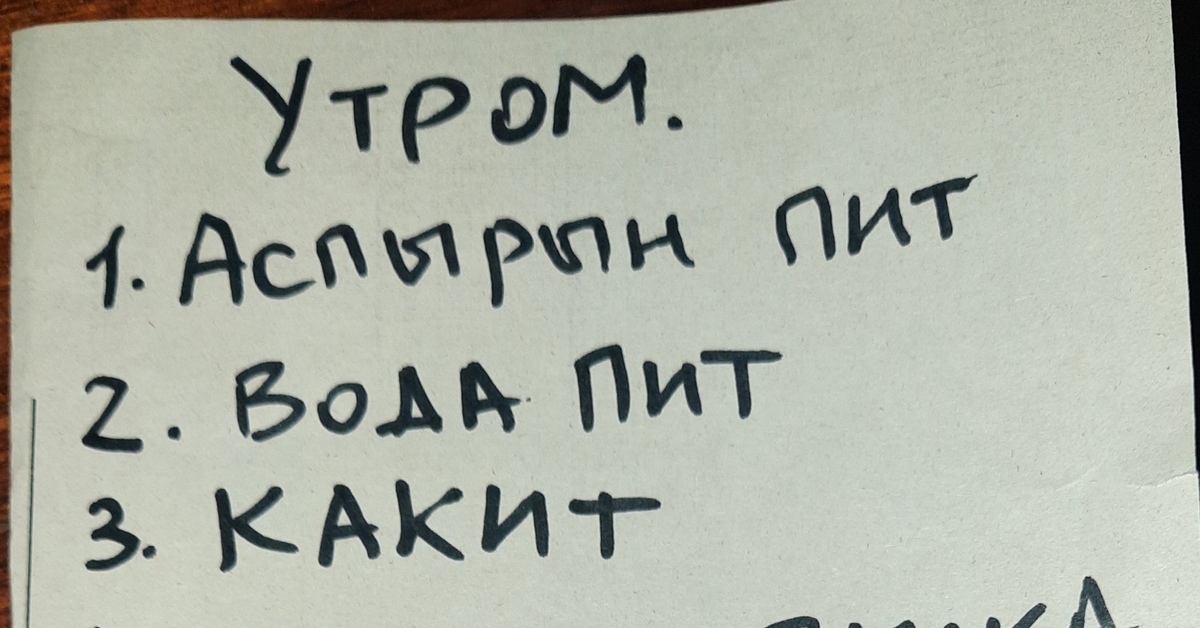 Утром.
1. Аспырын пит
2. Вода пит
3. Какит